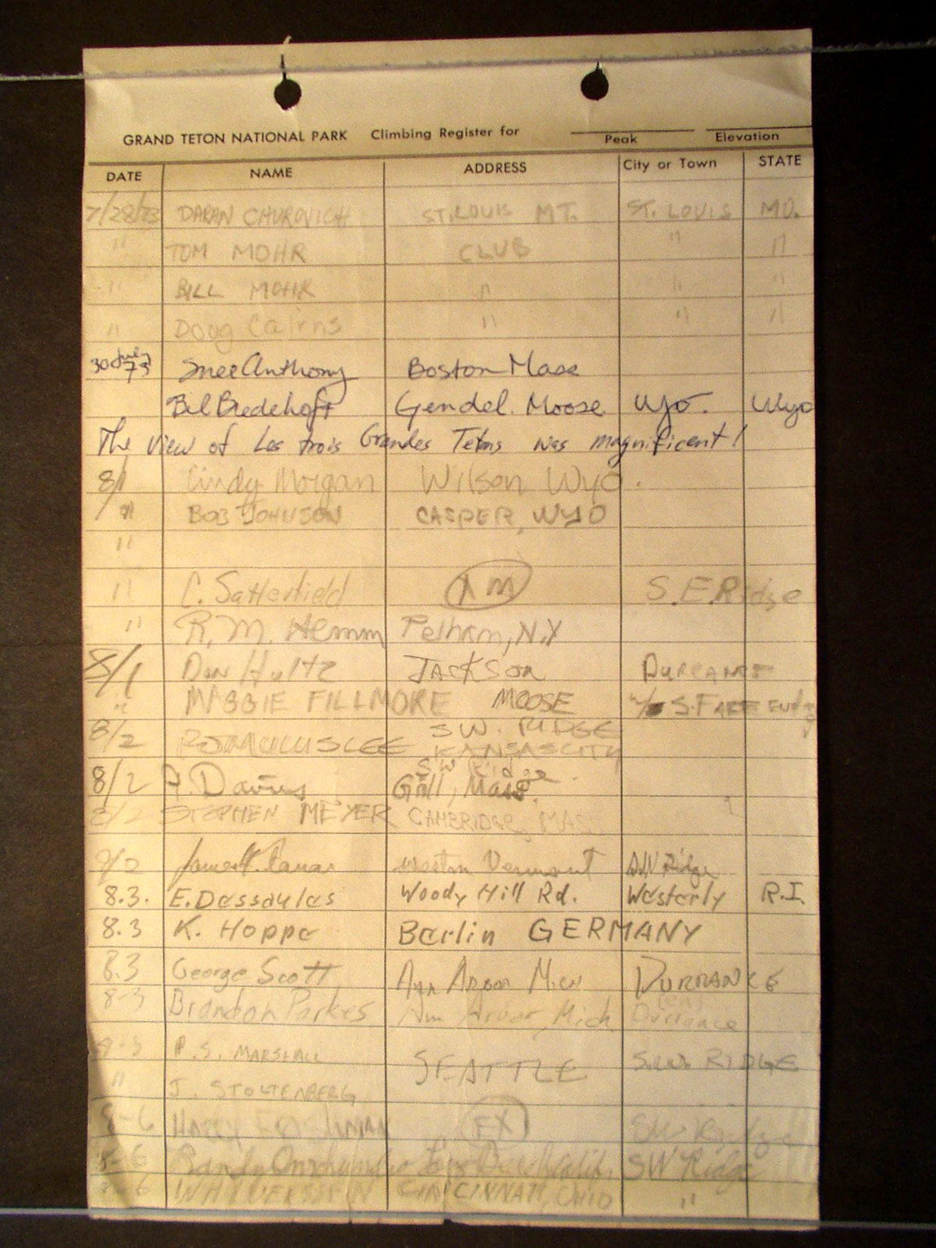 GRAND TETON NATIONAL PARK Climbing Register for
Peak Elevation
DATE NAME ADDRESS City or Town STATE
7/28/73 DARAN CHUROVICH ST. LOUIS MT. ST. LOUIS MO.
" TOM MOHR CLUB " "
" BILL MOHR " " "
" Doug Cairns " " "
30 July 73 Anthony Boston Mass
Bil Bredehoft Gendel. Moose Wyo. Wyo
The view of Les trois Grandes Tetons was magnificent!
8/1 Cindy Morgan Wilson Wyo.
" BOB JOHNSON CASPER, WYO
"
" C. Satterfield S.E. Ridge
" R.M. Pelham, N.Y
8/1 Don Hultz JACKSON DURRANCE
" MAGGIE FILLMORE MOOSE
8/2 ROMULUS LEE S.W. RIDGE
KANSAS CITY
S W Ridge
8/2 A. Davis Gill, Mass.
8/2 STEPHEN MEYER CAMBRIDGE, MAS.
8/2 Weston Vermont SW Ridge
8.3. E. Dessaules Woody Hill Rd. Westerly R.I.
8.3 K. Hoppe Berlin GERMANY
8.3 George Scott Ann Arbor Mich DURRANCE
8-3 Brandon Parkes Ann Arbor, Mich Durrance
8-3 P.S. MARSHALL SEATTLE S.W. RIDGE
" J. STOLTENBERG
8-6 Harry SW Ridge
8-6 Randy SW Ridge
8-6 CINCINNATI, OHIO "